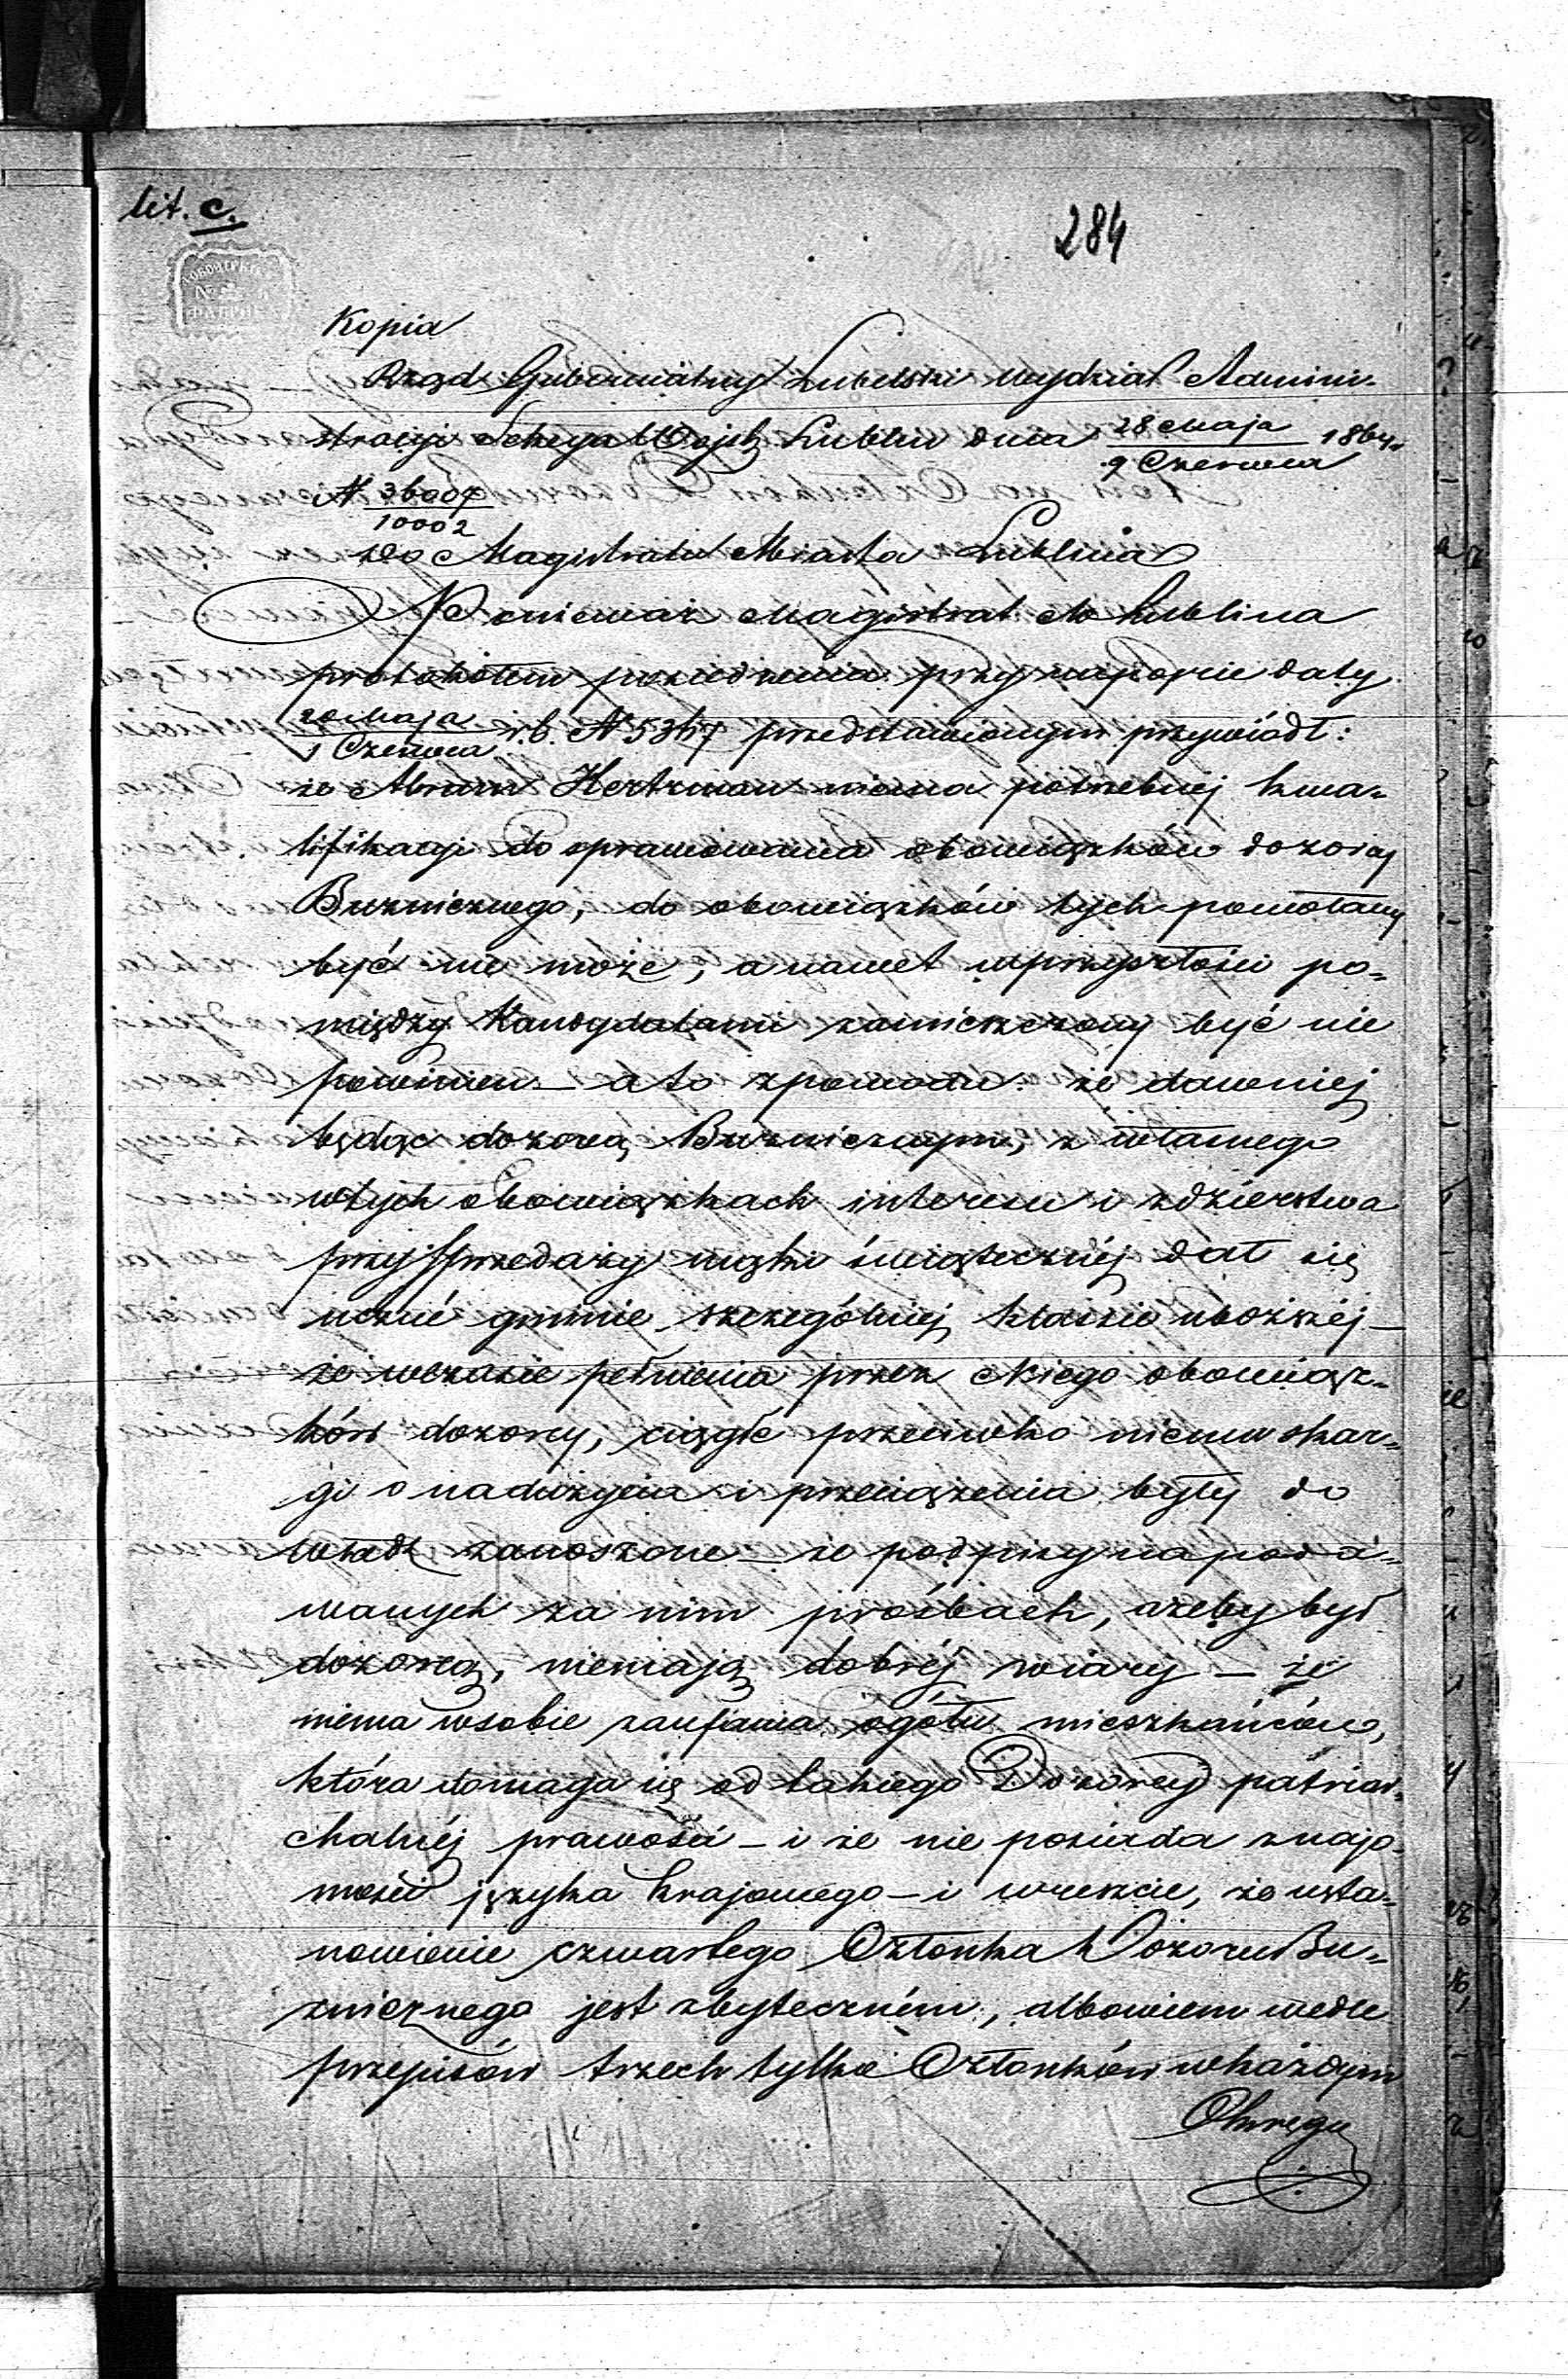 lit. c.
284
Kopia
Rząd Gubernialny Lubelski Wydział Admini-
stracyi Sekcya Wojsk Lublin dnia 28 Maja / 9 Czerwca 1864 r.
N 36007 / 10002
do Magistratu Miasta Lublina
Ponieważ Magistrat M Lublina
protokółem posiedzenia przy raporcie daty
20 Maja / 1 Czerwca r. b. N 5367 przedstawionym przywiódł:
że Abram Hertzman niema potrzebnej kwa-
lifikacyi do sprawowania obowiązków dozorcy
Buznicznego, do obowiązków tych powołany
być nie może, a nawet wprzyszłości po-
między Kandydatami zamieszczony być nie
powinien – a to zpowodu: że dawniej
będąc dozorcą Buznicznym, z własnego
wtych obowiązkach interesu i zdzierstwa
przy sprzedaży mąki świątecznéj dał się
uczuć gminie szczególniej klassie uboższéj –
że wczasie pełnienia przez Niego obowiąz-
ków dozorcy, ciągłe przeciwko niemu skar-
gi o nadużycia i przeciążenia były do
władz zanoszone – że podpisy na poda-
wanych za nim prośbach, ażeby był
dozorcą, niemają dobréj wiary – że
niema wsobie zaufania ogółu mieszkańców,
która domaga się od takiego Dozorcy patriar-
chalnéj prawości – i że nie posiada znajo-
mości języka krajowego – i wreszcie, że usta-
nowienie czwartego Członka Dozoru Bu-
znicznego jest zbyteczném, albowiem wedle
przepisów trzech tylko Członków wkażdym
Okręgu